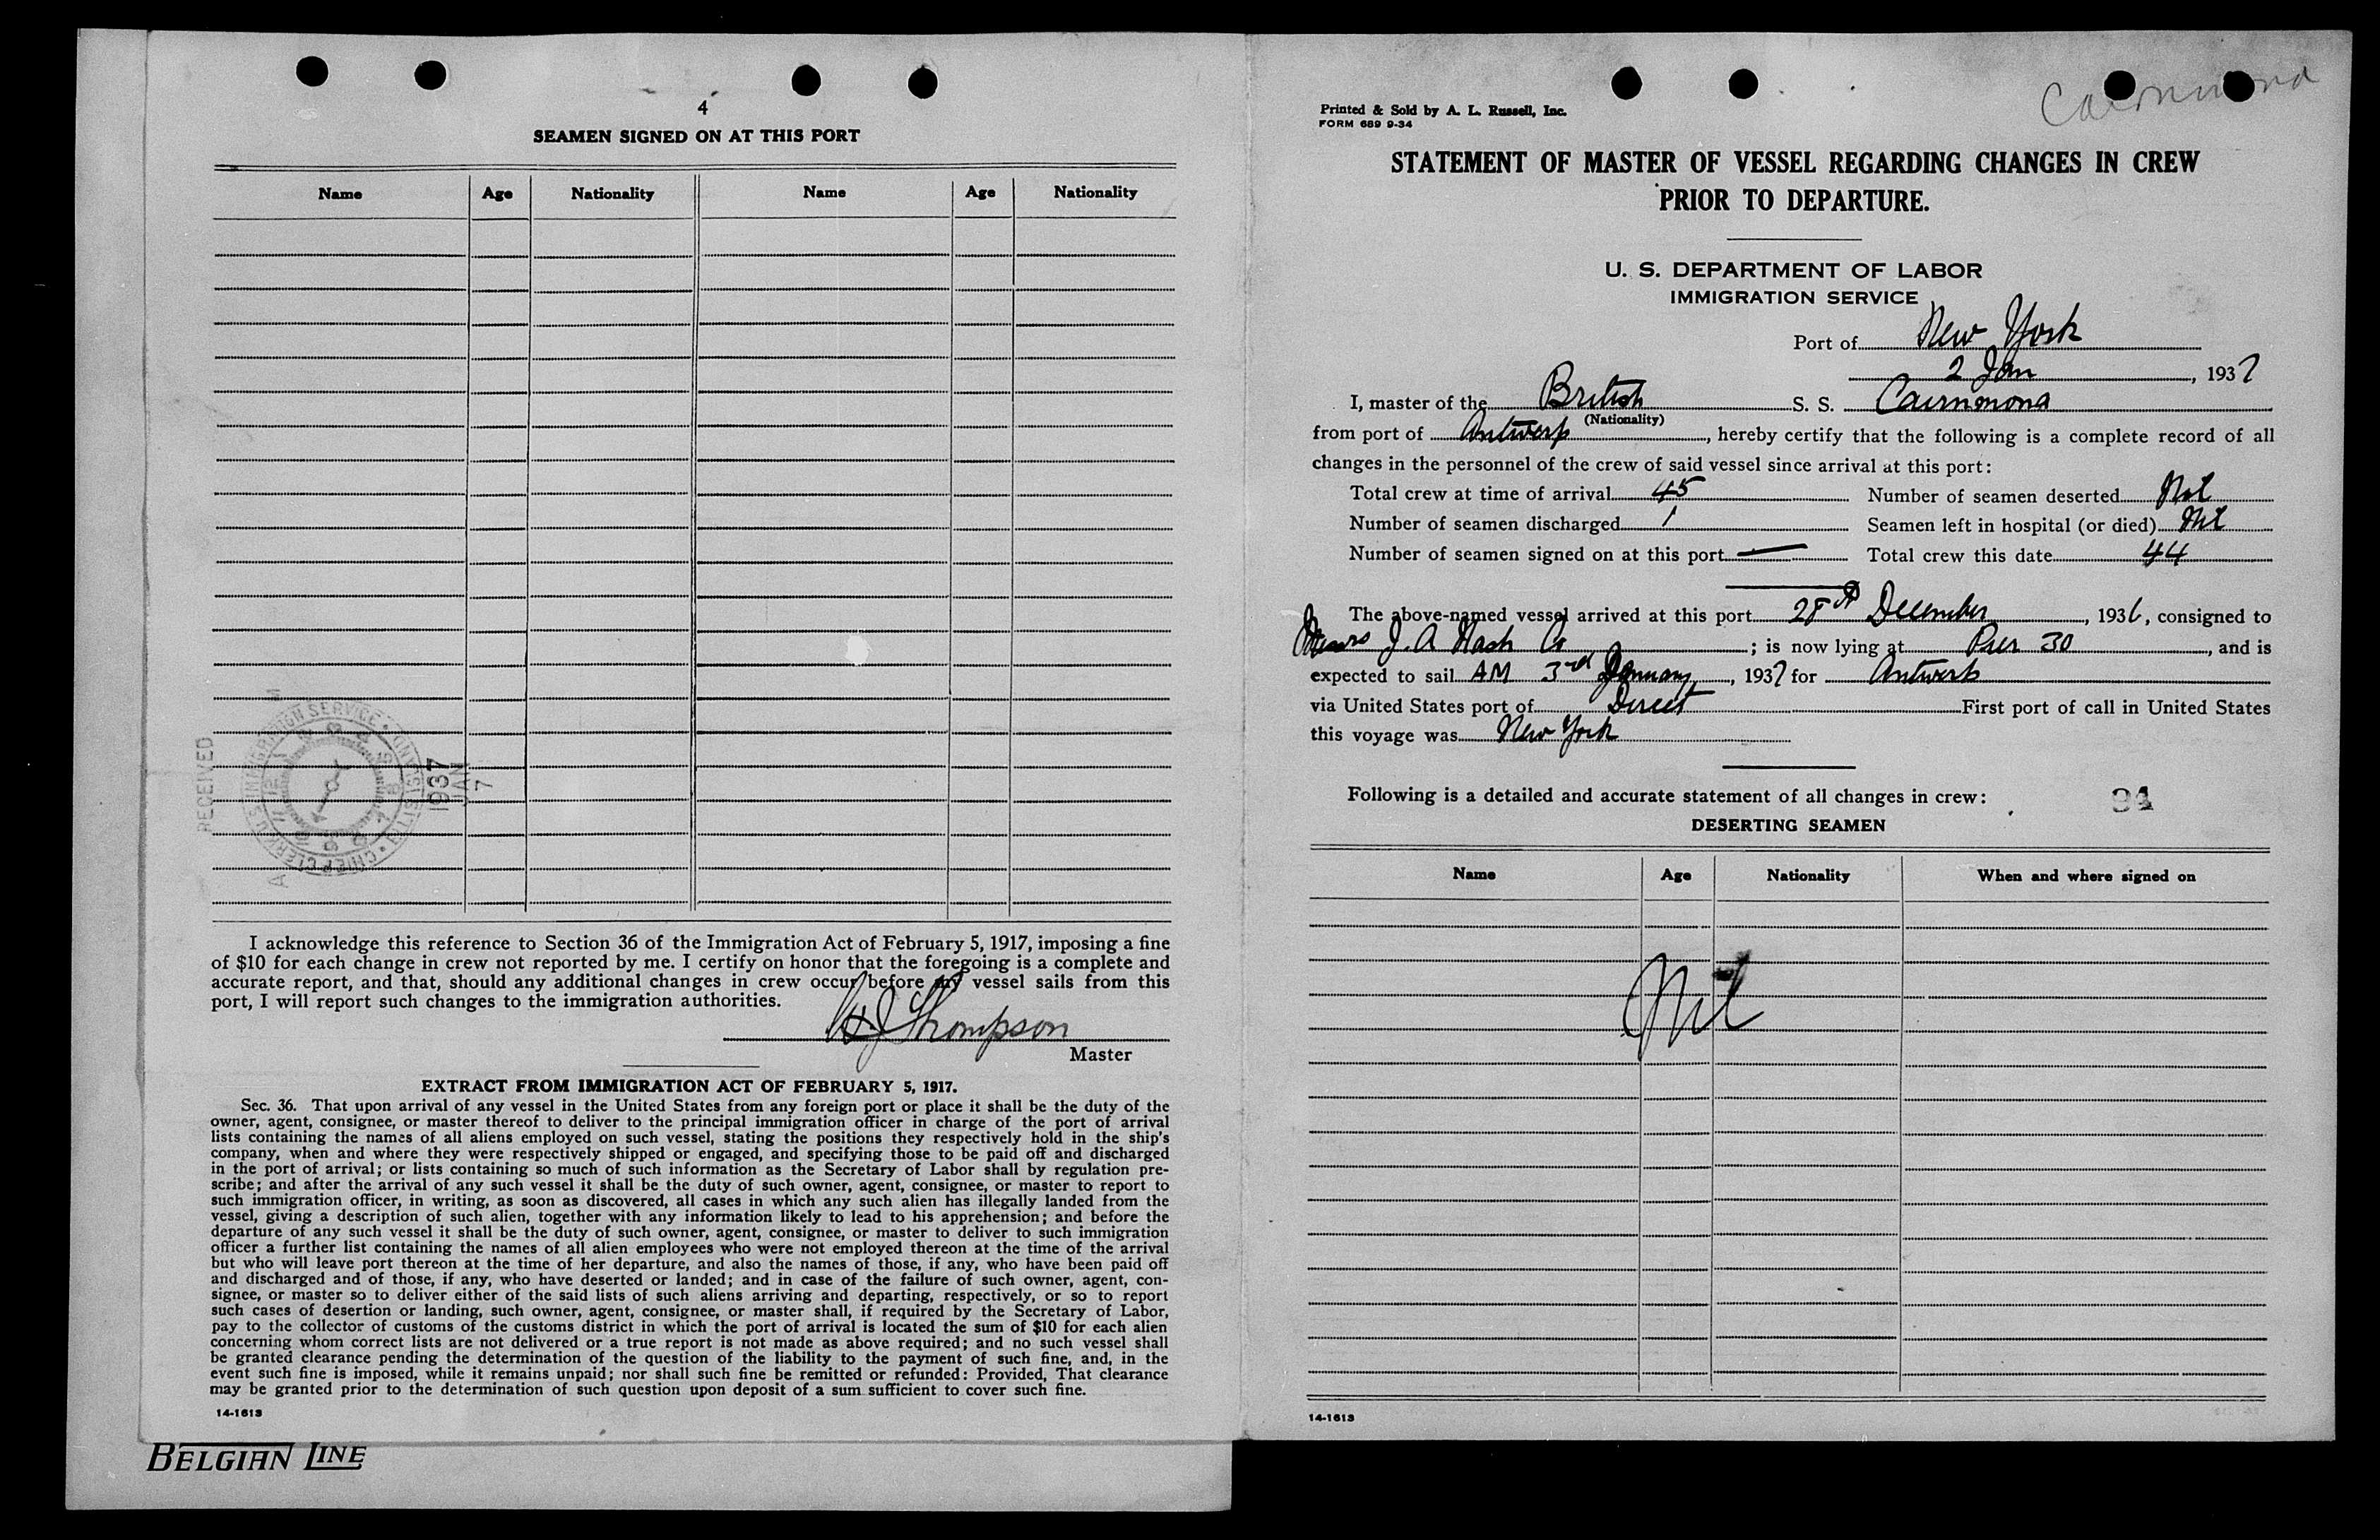 4
SEAMEN SIGNED ON AT THIS PORT
Name Age Nationality Name Age Nationality
RECEIVED
U.S. IMMIGRATION SERVICE • UNITED STATES • CHIEF CLERK
1937
JAN
7
I acknowledge this reference to Section 36 of the Immigration Act of February 5, 1917, imposing a fine
of $10 for each change in crew not reported by me. I certify on honor that the foregoing is a complete and
accurate report, and that, should any additional changes in crew occur before my vessel sails from this
port, I will report such changes to the immigration authorities.
Thompson
Master
EXTRACT FROM IMMIGRATION ACT OF FEBRUARY 5, 1917.
Sec. 36. That upon arrival of any vessel in the United States from any foreign port or place it shall be the duty of the
owner, agent, consignee, or master thereof to deliver to the principal immigration officer in charge of the port of arrival
lists containing the names of all aliens employed on such vessel, stating the positions they respectively hold in the ship's
company, when and where they were respectively shipped or engaged, and specifying those to be paid off and discharged
in the port of arrival; or lists containing so much of such information as the Secretary of Labor shall by regulation pre-
scribe; and after the arrival of any such vessel it shall be the duty of such owner, agent, consignee, or master to report to
such immigration officer, in writing, as soon as discovered, all cases in which any such alien has illegally landed from the
vessel, giving a description of such alien, together with any information likely to lead to his apprehension; and before the
departure of any such vessel it shall be the duty of such owner, agent, consignee, or master to deliver to such immigration
officer a further list containing the names of all alien employees who were not employed thereon at the time of the arrival
but who will leave port thereon at the time of her departure, and also the names of those, if any, who have been paid off
and discharged and of those, if any, who have deserted or landed; and in case of the failure of such owner, agent, con-
signee, or master so to deliver either of the said lists of such aliens arriving and departing, respectively, or so to report
such cases of desertion or landing, such owner, agent, consignee, or master shall, if required by the Secretary of Labor,
pay to the collector of customs of the customs district in which the port of arrival is located the sum of $10 for each alien
concerning whom correct lists are not delivered or a true report is not made as above required; and no such vessel shall
be granted clearance pending the determination of the question of the liability to the payment of such fine, and, in the
event such fine is imposed, while it remains unpaid; nor shall such fine be remitted or refunded: Provided, That clearance
may be granted prior to the determination of such question upon deposit of a sum sufficient to cover such fine.
14-1613
BELGIAN LINE
Cairnmona
Printed & Sold by A. L. Russell, Inc.
FORM 689 9-34
STATEMENT OF MASTER OF VESSEL REGARDING CHANGES IN CREW
PRIOR TO DEPARTURE.
U. S. DEPARTMENT OF LABOR
IMMIGRATION SERVICE
Port of New York
2 Jan, 1937
I, master of the British S. S. Cairnmona
(Nationality)
from port of Antwerp, hereby certify that the following is a complete record of all
changes in the personnel of the crew of said vessel since arrival at this port:
Total crew at time of arrival 45 Number of seamen deserted Nil
Number of seamen discharged 1 Seamen left in hospital (or died) Nil
Number of seamen signed on at this port — Total crew this date 44
The above-named vessel arrived at this port 28th December, 1936, consigned to
Messrs J. A Nash Co; is now lying at Pier 30, and is
expected to sail AM 3rd January, 1937 for Antwerp
via United States port of Direct First port of call in United States
this voyage was New York
Following is a detailed and accurate statement of all changes in crew: 94
DESERTING SEAMEN
Name Age Nationality When and where signed on
Nil
14-1613